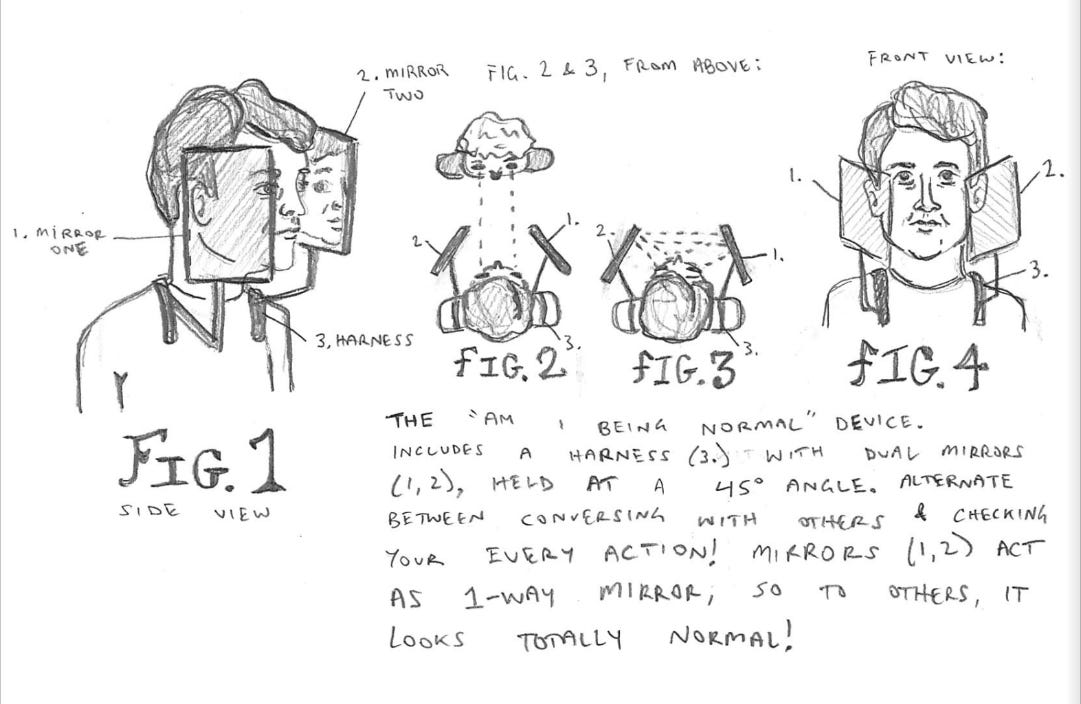 2. MIRROR TWO
FIG. 2 & 3, FROM ABOVE:
FRONT VIEW:
1. MIRROR ONE
3, HARNESS
2.
1.
3.
2
1.
3.
1.
2.
3.
FIG. 1
SIDE VIEW
FIG. 2
FIG. 3
FIG. 4
THE "AM I BEING NORMAL" DEVICE.
INCLUDES A HARNESS (3.) WITH DUAL MIRRORS
(1, 2), HELD AT A 45° ANGLE. ALTERNATE
BETWEEN CONVERSING WITH OTHERS & CHECKING
YOUR EVERY ACTION! MIRRORS (1,2) ACT
AS 1-WAY MIRROR, SO TO OTHERS, IT
LOOKS TOTALLY NORMAL!